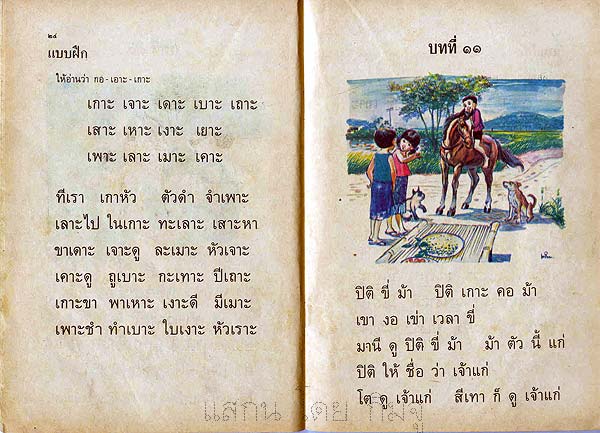 ๒๔
แบบฝึก
ให้อ่านว่า กอ - เอาะ - เกาะ
เกาะ เจาะ เดาะ เบาะ เถาะ
เสาะ เหาะ เงาะ เยาะ
เพาะ เลาะ เมาะ เคาะ
ทีเรา เกาหัว ตัวดำ จำเพาะ
เลาะไป ในเกาะ ทะเลาะ เสาะหา
ขาเดาะ เจาะดู ละเมาะ หัวเจาะ
เคาะดู ถูเบาะ กะเทาะ ปีเถาะ
เกาะขา พาเหาะ เงาะดี มีเมาะ
เพาะชำ ทำเบาะ ใบเงาะ หัวเราะ
บทที่ ๑๑
ปิติ ขี่ ม้า ปิติ เกาะ คอ ม้า
เขา งอ เข่า เวลา ขี่
มานี ดู ปิติ ขี่ ม้า ม้า ตัว นี้ แก่
ปิติ ให้ ชื่อ ว่า เจ้าแก่
โต ดู เจ้าแก่ สีเทา ก็ ดู เจ้าแก่
แสกน โดย กิมจู